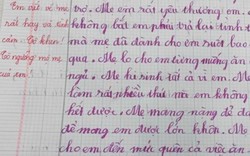 Em rất vì mẹ
rất hay và tình
cảm. Cô khen!
trở. Mẹ em rất yêu thương em.
không bắt em phải trả lại tình t
mà mẹ đã dành cho em suốt ba
qua. Mẹ lo cho em từng miếng ăn
ngủ. Mẹ hi sinh tất cả vì em. Mẹ
làm rất nhiều thứ mà em không
hết được. Mẹ mang nặng đẻ đa
để mong em được lớn khôn. Mẹ
cho em đến mức quên cả việc ăn